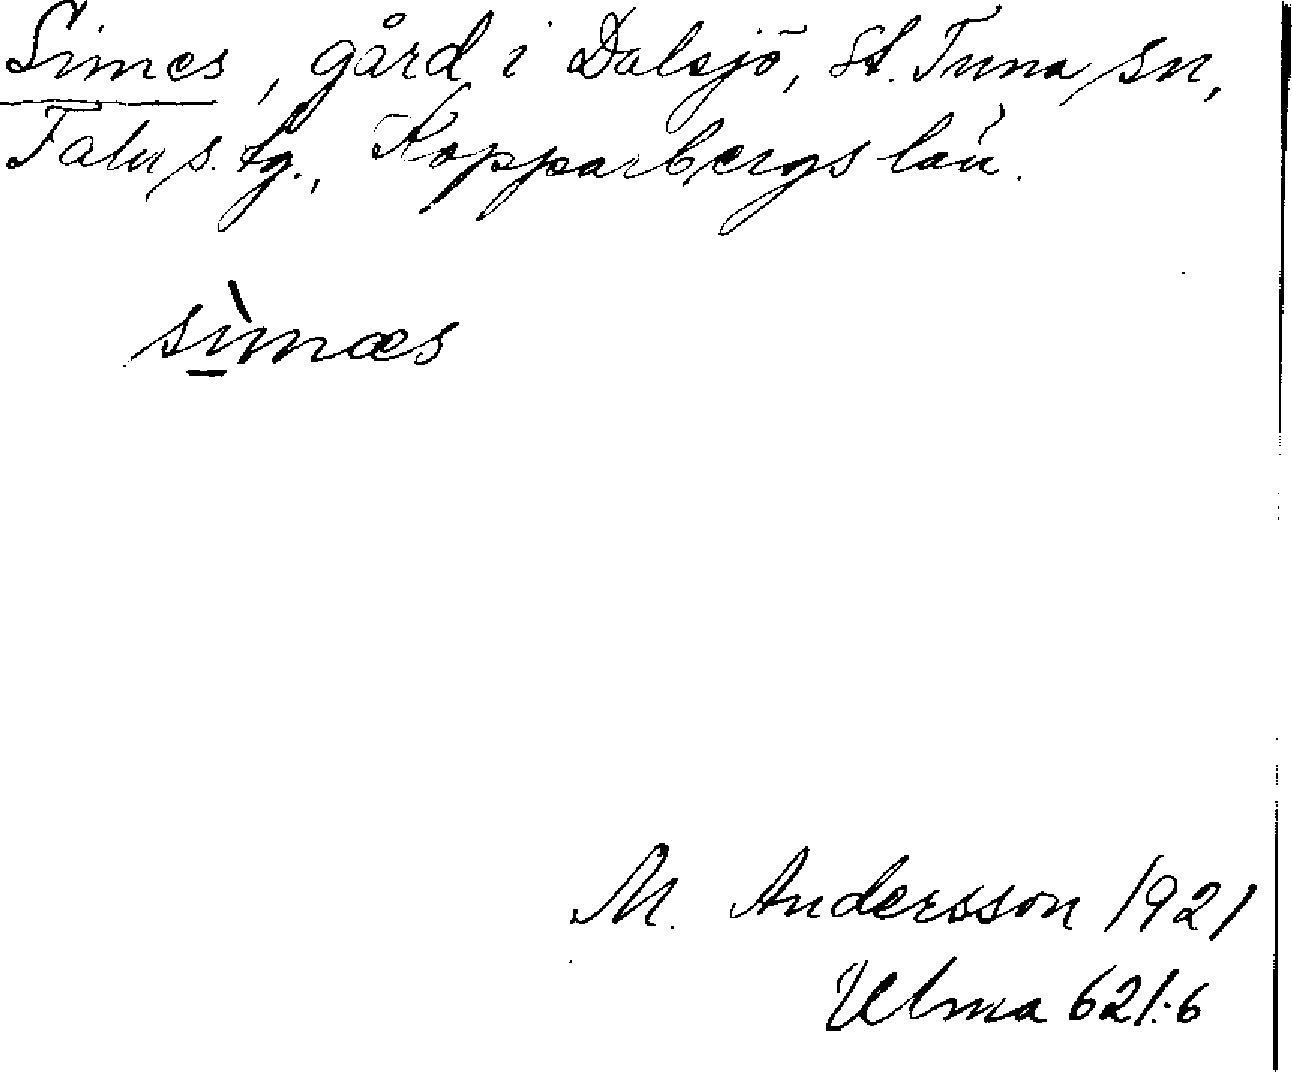 Simes, gård i Dalsjö, St. Tuna sn,
Falu s. tg., Kopparbergs län.
sìmæs
M. Andersson 1921
Ulma 621:6